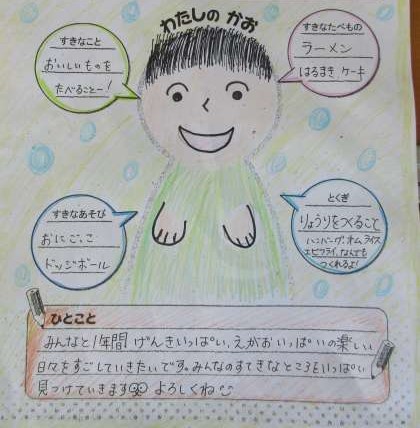 わたしの かお
すきなこと
おいしいものを
たべることー！
すきなたべもの
ラーメン
はるまき ケーキ
すきなあそび
おにごっこ
ドッジボール
とくぎ
りょうりをつくること
ハンバーグ、オムライス
エビフライ、なんでも
つくれるよ！
ひとこと
みんなと1年間げんきいっぱい、えがおいっぱいの楽しい
日々をすごしていきたいです。みんなのすてきなところをいっぱい
見つけていきます よろしくね